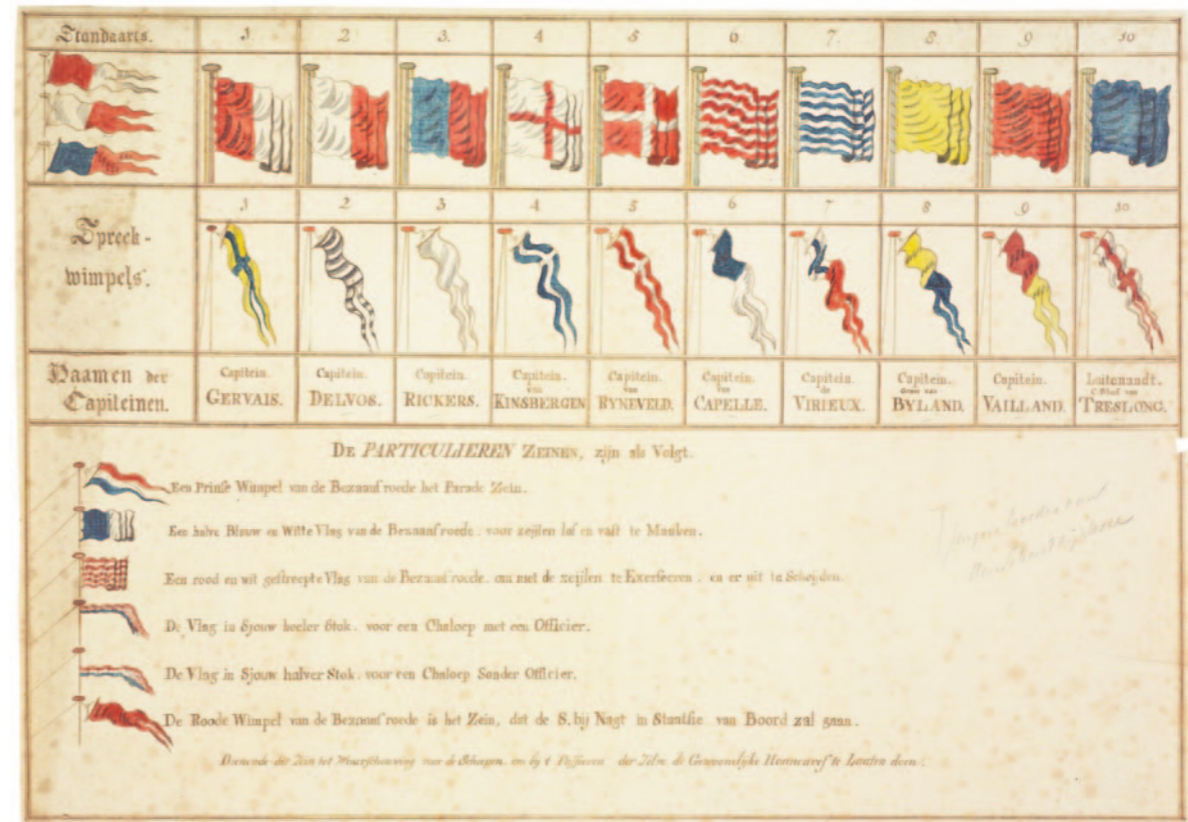 Standaarts. 1 2 3. 4 5 6. 7. 8. 9 10
Spreek-
wimpels. 1 2 3 4. 5 6 7 8 9 10
Naamen der
Capiteinen.
Capitein.
GERVAIS.
Capitein.
DELVOS.
Capitein.
RICKERS.
Capitein.
van
KINSBERGEN
Capitein.
van
RYNEVELD.
Capitein.
van
CAPELLE.
Capitein.
de
VIRIEUX.
Capitein.
Grave van
BYLAND.
Capitein.
VAILLAND.
Luitenandt.
van
TRESLONG.
DE PARTICULIEREN ZEINEN, zijn als Volgt.
Een Prinse Wimpel van de Bezaansroede het Parade Zein.
Een halve Blauw en Witte Vlag van de Bezaansroede. voor zeijlen los en vast te Maaken.
Een rood en wit gestreepte Vlag van de Bezaansroede. om met de zeijlen te Exerseeren. en er uit te Scheyden.
De Vlag in Sjouw heeler Stok. voor een Chaloep met een Officier.
De Vlag in Sjouw halver Stok. voor een Chaloep Sonder Officier.
De Roode Wimpel van de Bezaansroede is het Zein, dat de S. bij Nagt in Staatsie van Boord zal gaan.
de Schepen om by t Passeeren der de Gewoonlyke te Laaten doen.